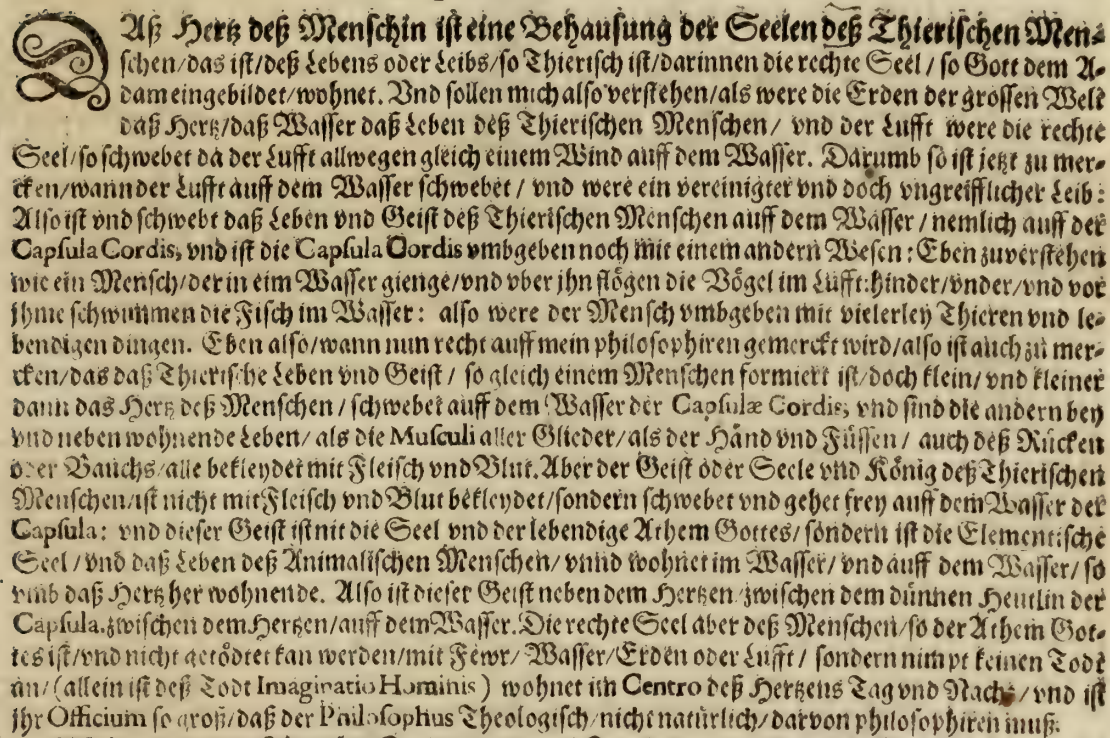 DAß Hertz deß Menschin ist eine Behausung der Seelen deß Thierischen Men-
schen/das ist/deß Lebens oder Leibs/so Thierisch ist/darinnen die rechte Seel/so Gott dem A-
dam eingebildet/wohnet. Vnd sollen mich also verstehen/als were die Erden der grossen Welt
daß Hertz/daß Wasser daß Leben deß Thierischen Menschen/ vnd der Lufft were die rechte
Seel/so schwebet da der Lufft allwegen gleich einem Wind auff dem Wasser. Darumb so ist jetzt zu mer-
cken/wann der Lufft auff dem Wasser schwebet/ vnd were ein vereinigter vnd doch vngreifflicher Leib:
Also ist vnd schwebt daß Leben vnd Geist deß Thierischen Menschen auff dem Wasser/nemlich auff der
Capsula Cordis, vnd ist die Capsula Cordis vmbgeben noch mit einem andern Wesen: Eben zuverstehen
wie ein Mensch/der in eim Wasser gienge/vnd vber jhn flögen die Vögel im Lufft: hinder/vnder/vnd vor
jhme schwimmen die Fisch im Wasser: also were der Mensch vmbgeben mit vielerley Thieren vnd le-
bendigen dingen. Eben also/wann nun recht auff mein philosophiren gemerckt wird/also ist auch zu mer-
cken/das daß Thierische Leben vnd Geist/ so gleich einem Menschen formiert ist/doch klein/ vnd kleiner
dann das Hertz deß Menschen/ schwebet auff dem Wasser der Capsulæ Cordis, vnd sind die andern bey
vnd neben wohnende Leben/ als die Musculi aller Glieder/als der Händ vnd Füssen/ auch deß Rücken
oder Bauchs/alle bekleydet mit Fleisch vnd Blut. Aber der Geist oder Seele vnd König deß Thierischen
Menschen/ist nicht mit Fleisch vnd Blut bekleydet/sondern schwebet vnd gehet frey auff dem Wasser der
Capsula: vnd dieser Geist ist nit die Seel vnd der lebendige Athem Gottes/ sondern ist die Elementische
Seel/vnd daß Leben deß Animalischen Menschen/ vnnd wohnet im Wasser/ vnd auff dem Wasser/ so
vmb daß Hertz her wohnende. Also ist dieser Geist neben dem Hertzen/zwischen dem dünnen Heutlin der
Capsula, zwischen dem Hertzen/auff dem Wasser. Die rechte Seel aber deß Menschen/so der Athem Got-
tes ist/vnd nicht getödtet kan werden/mit Fewr/ Wasser/Erden oder Lufft/ sondern nimpt keinen Todt
an/(allein ist deß Todt Imaginatio Hominis) wohnet im Centro deß Hertzens Tag vnd Nacht/ vnd ist
jhr Officium so groß/daß der Philosophus Theologisch/nicht natürlich/darvon philosophiren muß.